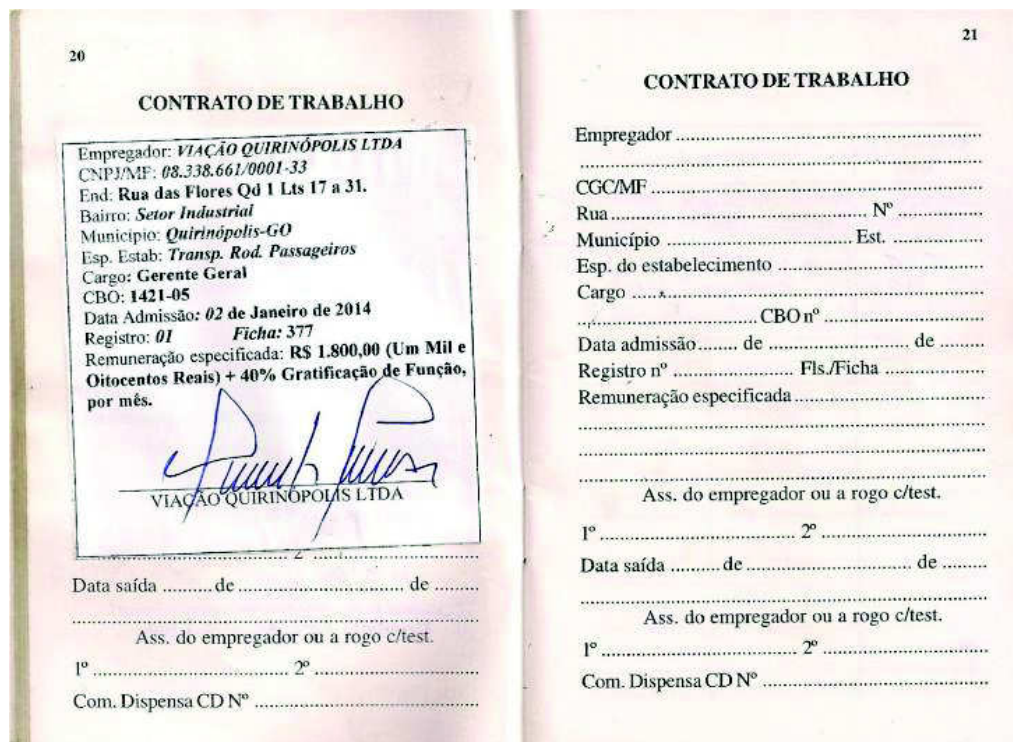 20
CONTRATO DE TRABALHO
Empregador: VIAÇÃO QUIRINÓPOLIS LTDA
CNPJ/MF: 08.338.661/0001-33
End: Rua das Flores Qd 1 Lts 17 a 31.
Bairro: Setor Industrial
Município: Quirinópolis-GO
Esp. Estab: Transp. Rod. Passageiros
Cargo: Gerente Geral
CBO: 1421-05
Data Admissão: 02 de Janeiro de 2014
Registro: 01 Ficha: 377
Remuneração especificada: R$ 1.800,00 (Um Mil e
Oitocentos Reais) + 40% Gratificação de Função,
por mês.
VIAÇÃO QUIRINÓPOLIS LTDA
2º
Data saída ......... de .............................. de ........
Ass. do empregador ou a rogo c/test.
1º .................................... 2º ..............................
Com. Dispensa CD Nº ........................................
21
CONTRATO DE TRABALHO
Empregador ......................................................
CGC/MF ..........................................................
Rua .............................................. Nº ...............
Município .................................. Est. ................
Esp. do estabelecimento ....................................
Cargo ..............................................................
.................................. CBO nº ............................
Data admissão ....... de ......................... de ........
Registro nº ...................... Fls./Ficha ..................
Remuneração especificada ..................................
Ass. do empregador ou a rogo c/test.
1º .................................... 2º ..............................
Data saída ......... de .............................. de ........
Ass. do empregador ou a rogo c/test.
1º .................................... 2º ..............................
Com. Dispensa CD Nº ........................................